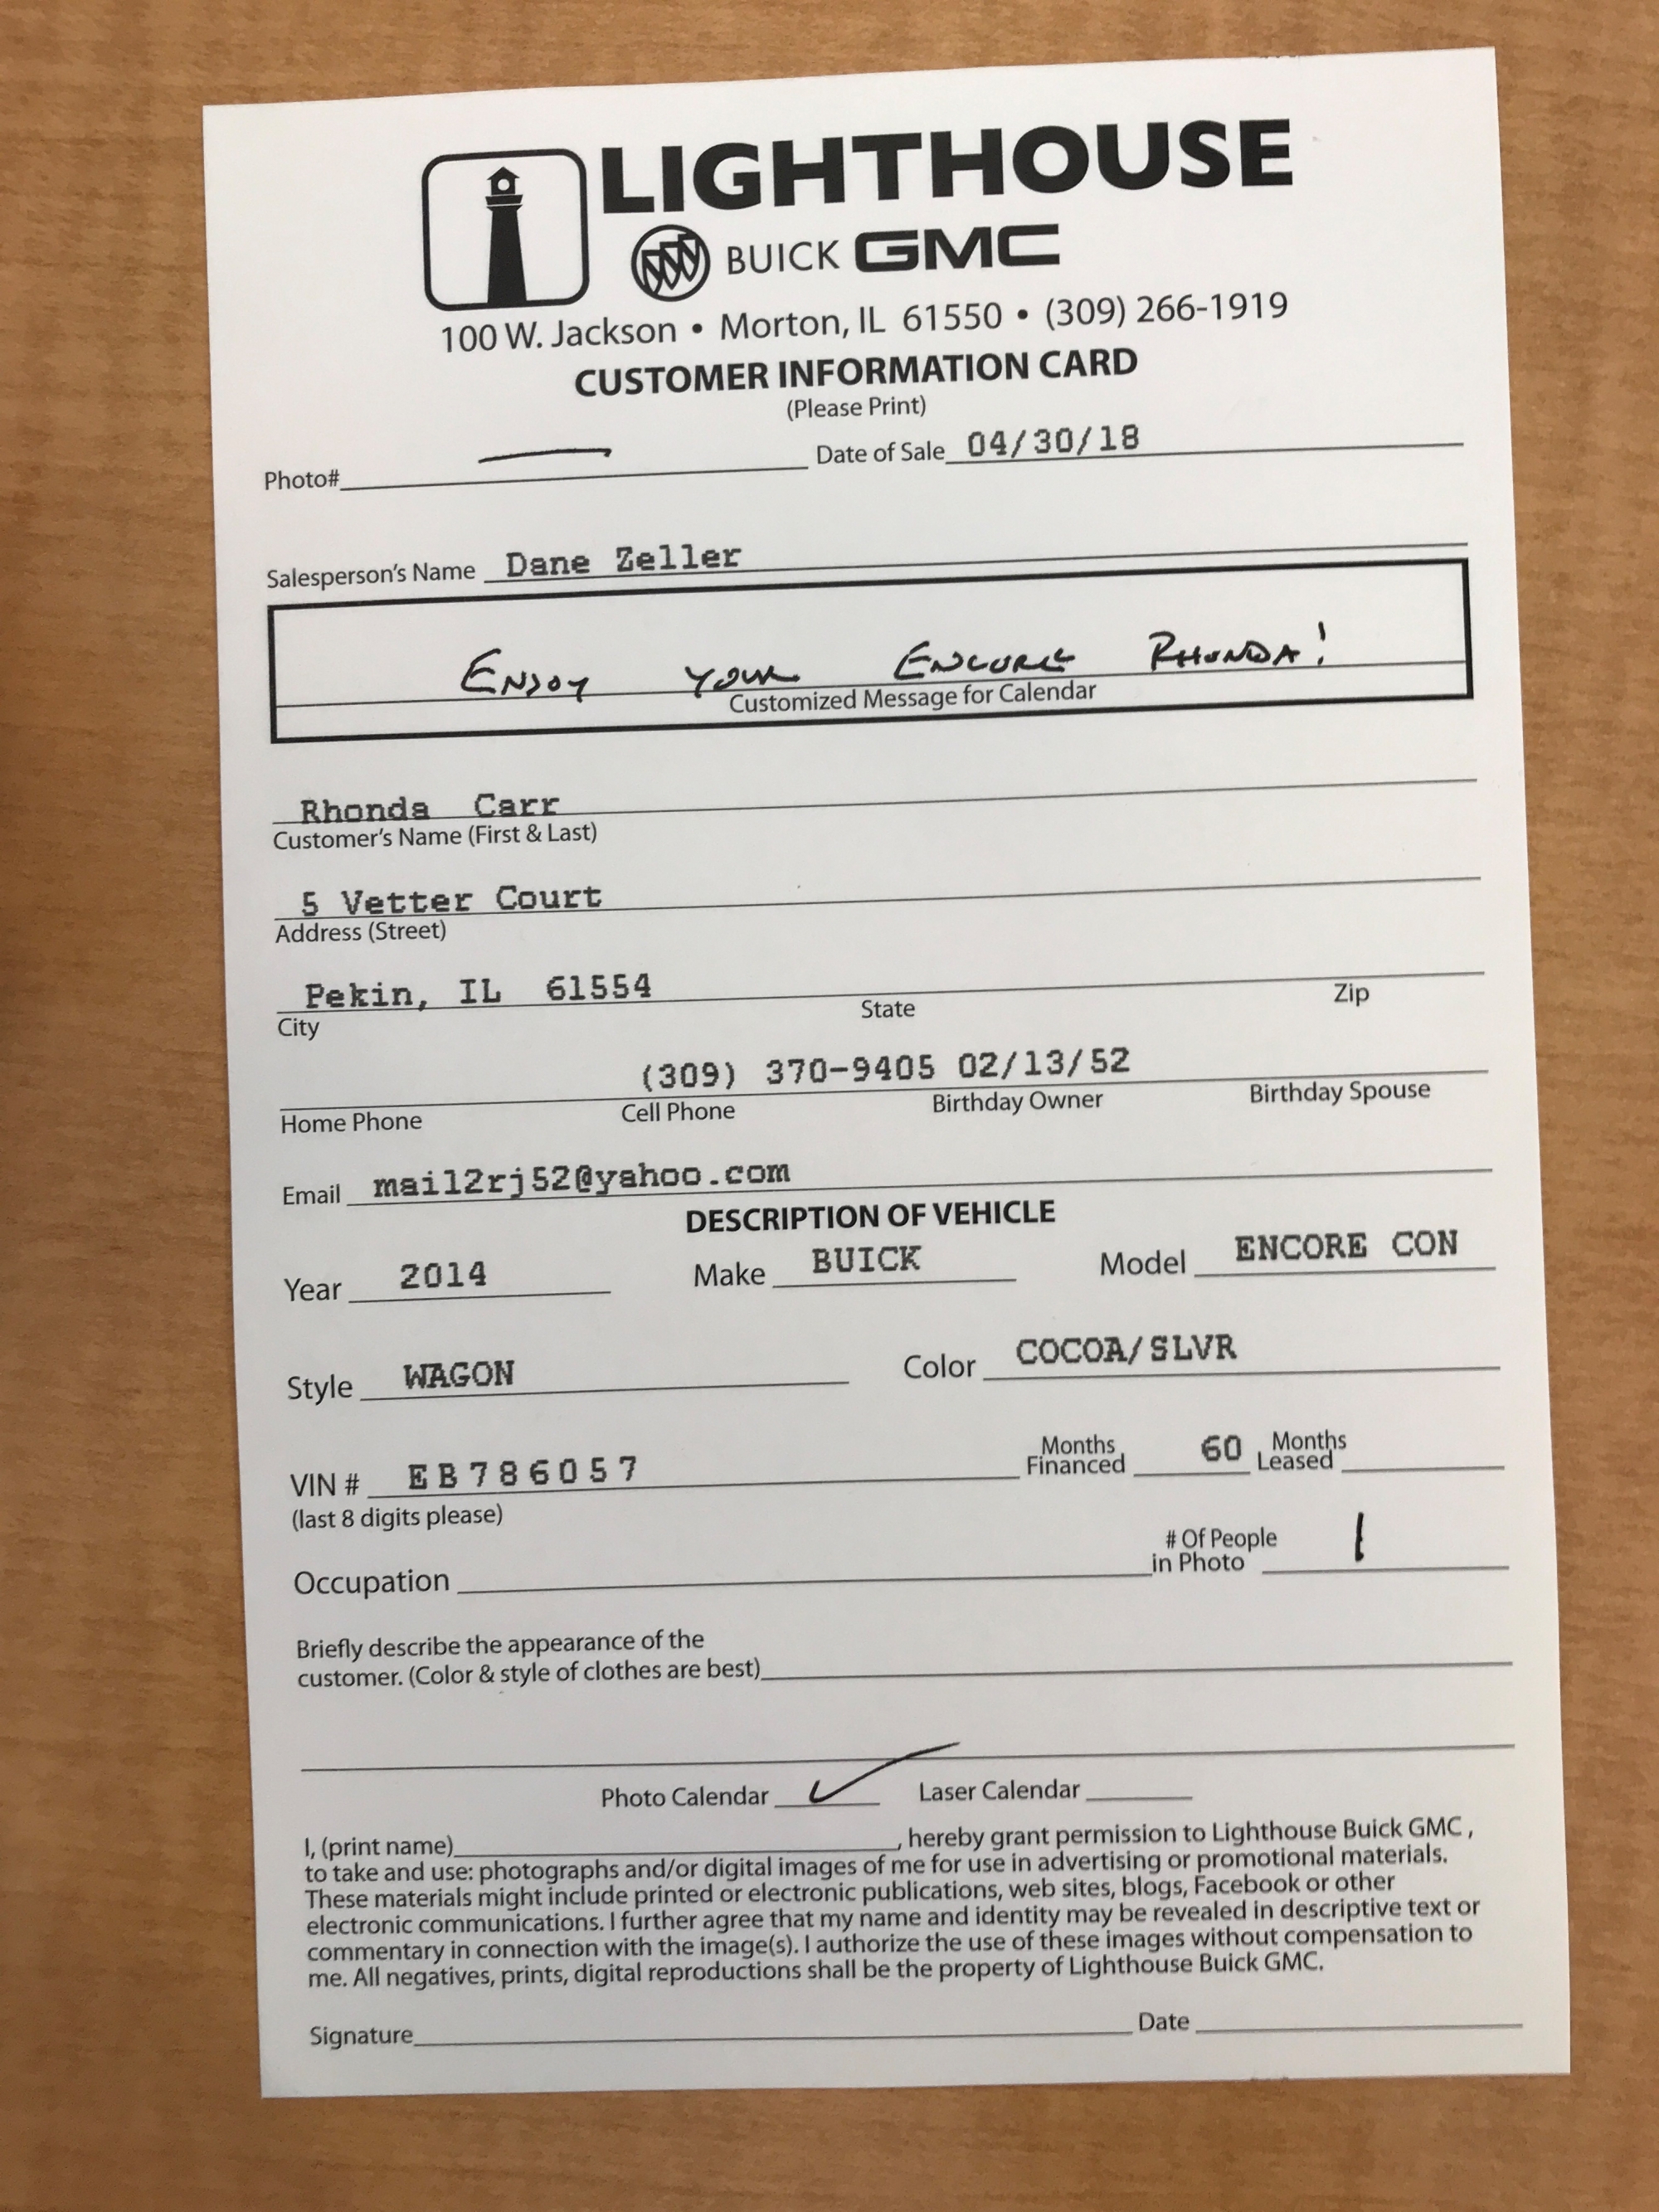 LIGHTHOUSE
BUICK GMC
100 W. Jackson • Morton, IL 61550 • (309) 266-1919
CUSTOMER INFORMATION CARD
(Please Print)
Photo# — Date of Sale 04/30/18
Salesperson's Name Dane Zeller
ENJOY YOUR ENCORE RHONDA!
Customized Message for Calendar
Rhonda Carr
Customer's Name (First & Last)
5 Vetter Court
Address (Street)
Pekin, IL 61554
City State Zip
(309) 370-9405 02/13/52
Home Phone Cell Phone Birthday Owner Birthday Spouse
Email mail2rj52@yahoo.com
DESCRIPTION OF VEHICLE
Year 2014 Make BUICK Model ENCORE CON
Style WAGON Color COCOA/SLVR
VIN # EB786057 Months Financed 60 Months Leased
(last 8 digits please)
Occupation # Of People in Photo 1
Briefly describe the appearance of the
customer. (Color & style of clothes are best)
Photo Calendar ✓ Laser Calendar
I, (print name) , hereby grant permission to Lighthouse Buick GMC ,
to take and use: photographs and/or digital images of me for use in advertising or promotional materials.
These materials might include printed or electronic publications, web sites, blogs, Facebook or other
electronic communications. I further agree that my name and identity may be revealed in descriptive text or
commentary in connection with the image(s). I authorize the use of these images without compensation to
me. All negatives, prints, digital reproductions shall be the property of Lighthouse Buick GMC.
Signature Date